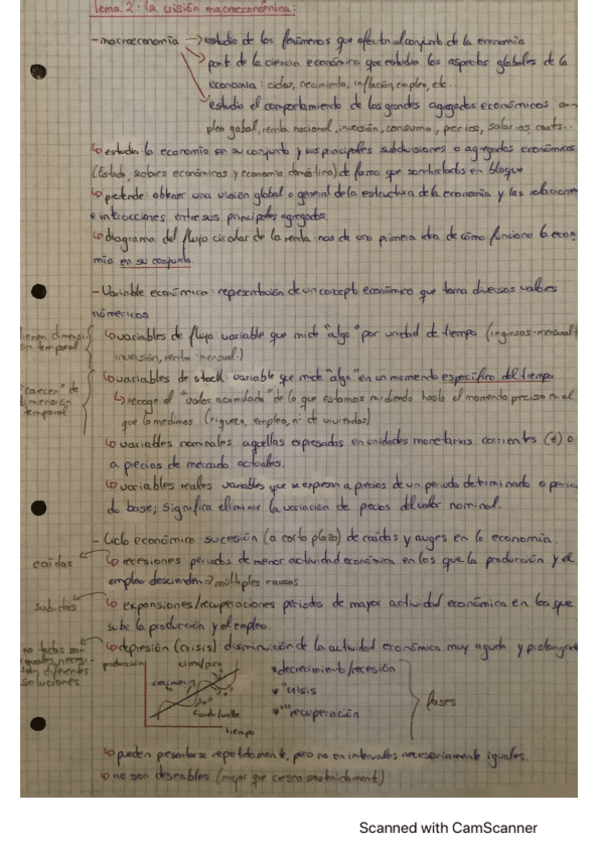 Tema 2: la visión macroeconómica:
- macroeconomía → estudio de los fenómenos que afectn al conjunto de la economía
part de la ciencia económica que estudia los aspectos globales de la
economía: ciclos, crecimiento, inflación, empleo, etc.
estudia el comportamiento de los grandes agregados económicos em-
pleo gobal, renta nacional, inversión, consumo, precios, salarios, costs...
↳ estudia la economía en su conjunto y sus principales subdivisiones o agregados económicos
(Estado, sectores económicos y economía doméstica) de forma que son tratados en bloque
↳ pretende: obtener una visión global o general de la estructura de la economía y las relaciones
e interacciones entre sus principales agregados.
↳ diagrama del flujo circular de la renta: nos da una primera idea de cómo funciona la econ
mía en su conjunto.
- Variable económica: representación de un concepto económico que toma diversos valores
númericos
tienen dimensi
ón temporal
↳ variables de flujo variable que mide "algo" por unidad de tiempo (ingresos-mensual
inversión, renta-mensual.)
"carecen" de
dimensión
temporal
↳ variables de stock: variable que mide "algo" en un momento específico del tiempo
↳ recoge el "valor acumulado" de lo que estamos midiendo hasta el momento preciso en el
que lo medimos (riqueza, empleo, nº de viviendas)
↳ variables nominales aquellas expresadas en unidades monetarias corrientes (€) o
a precios de mercado actuales.
↳ variables reales variables que se expresan a precios de un periodo determinado o perio
do base; significa eliminar la variación de precios del valor nominal.
- Ciclo económico sucesión (a corto plazo) de caídas y auges en la economía.
caídas
↳ recesiones: periodos de menor actividad económica en los que la producción y el
empleo descienden ⇒ múltiples causas
subidas
↳ expansiones/recuperaciones periodos de mayor actividad económica en los que
sube la producción y el empleo.
no todas son
iguales, necesi-
tan diferentes
soluciones
↳ depresión (crisis) disminución de la actividad económica muy aguda y prolongada
producción
cima/pico
tiempo
* decrecimiento/recesión
* " crisis
* " recuperación
fases
↳ pueden presentarse repetidament, pero no en intervalos necesariamente iguales.
↳ no son deseables (mejor que crezca constantement)
Scanned with CamScanner